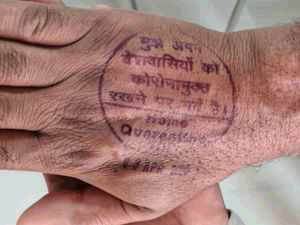 मुझे अपने
देशवासियों को
कोरोनामुक्त
रखने पर गर्व है।
Home
Quarantine